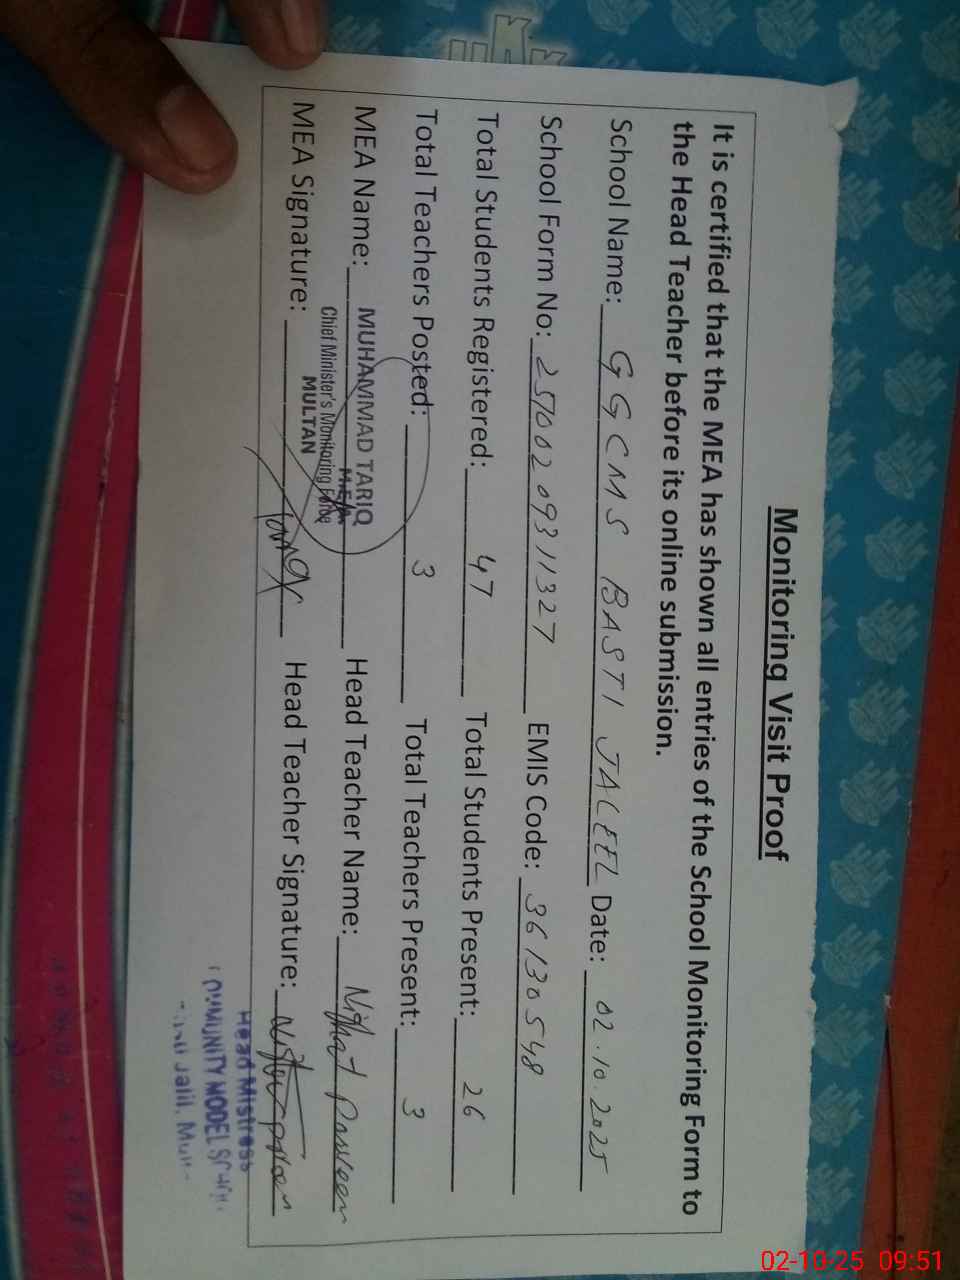 Monitoring Visit Proof
It is certified that the MEA has shown all entries of the School Monitoring Form to
the Head Teacher before its online submission.
School Name: GGCMS BASTI JALEEL Date: 02.10.2025
School Form No: 2510020931132 7 EMIS Code: 36130548
Total Students Registered: 47 Total Students Present: 26
Total Teachers Posted: 3 Total Teachers Present: 3
MEA Name: MUHAMMAD TARIQ Head Teacher Name: Nighat Parveen
M.E.A
Chief Minister's Monitoring Force
MULTAN
MEA Signature: Tariq Head Teacher Signature:
Head Mistress
COMMUNITY MODEL
Jalil,
02-10-25 09:51